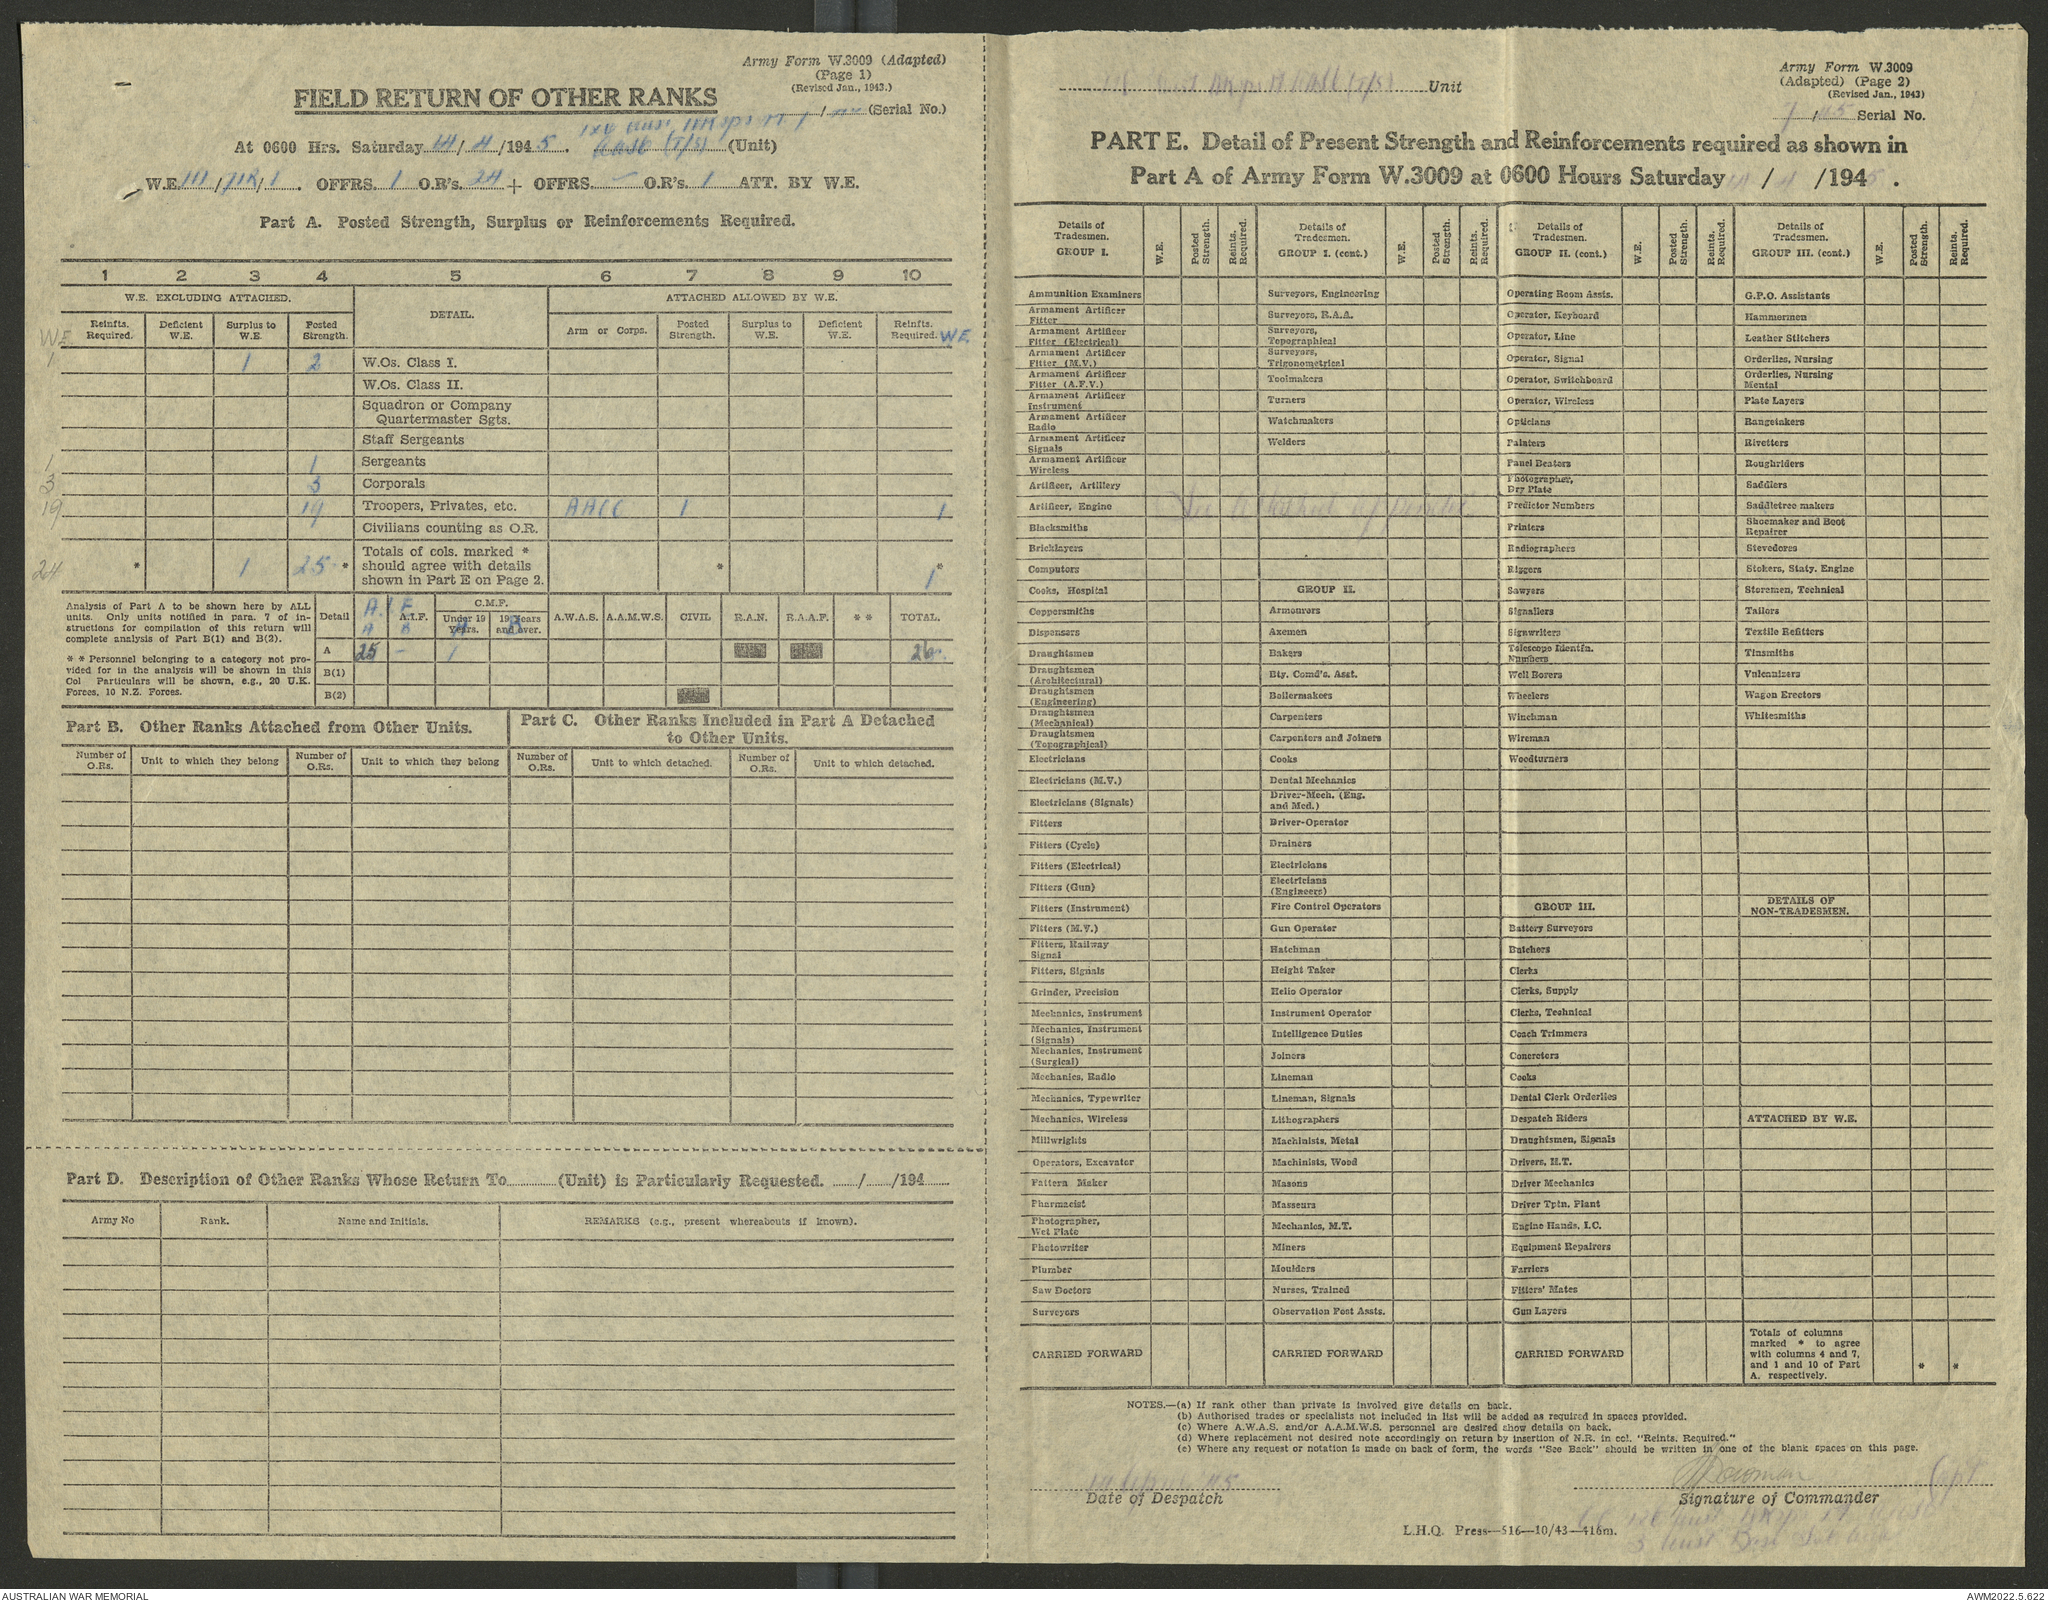 Army Form W.3009 (Adapted)
(Page 1)
(Revised Jan., 1943.)
FIELD RETURN OF OTHER RANKS
(Serial No.)
At 0600 Hrs. Saturday 14/4/1945. (Unit)
W.E. III/ /1. OFFRS. 1 O.R's. 24 + OFFRS. – O.R's. 1 ATT. BY W.E.
Part A. Posted Strength, Surplus or Reinforcements Required.
1 2 3 4 5 6 7 8 9 10
W.E. EXCLUDING ATTACHED. DETAIL. ATTACHED ALLOWED BY W.E.
W.E. Reinfts. Required. Deficient W.E. Surplus to W.E. Posted Strength. Arm or Corps. Posted Strength. Surplus to W.E. Deficient W.E. Reinfts. Required. W.E.
1 1 2 W.Os. Class I.
W.Os. Class II.
Squadron or Company
Quartermaster Sgts.
Staff Sergeants
1 1 Sergeants
3 3 Corporals
19 19 Troopers, Privates, etc. AACC 1 1
Civilians counting as O.R.
24 * 1 25 * Totals of cols. marked * should agree with details shown in Part E on Page 2. * * 1
Analysis of Part A to be shown here by ALL
units. Only units notified in para. 7 of in-
structions for compilation of this return will
complete analysis of Part B(1) and B(2).
* * Personnel belonging to a category not pro-
vided for in the analysis will be shown in this
Col Particulars will be shown, e.g., 20 U.K.
Forces, 10 N.Z. Forces.
Detail A.I.F. A B A.I.F. C.M.F. Under 19 Years. A 19 Years and over. B A.W.A.S. A.A.M.W.S. CIVIL R.A.N. R.A.A.F. * * TOTAL.
A 25 – 1 26
B(1)
B(2)
Part B. Other Ranks Attached from Other Units.
Number of O.Rs. Unit to which they belong Number of O.Rs. Unit to which they belong
Part C. Other Ranks Included in Part A Detached
to Other Units.
Number of O.Rs. Unit to which detached. Number of O.Rs. Unit to which detached.
Part D. Description of Other Ranks Whose Return To (Unit) is Particularly Requested. / /194
Army No Rank. Name and Initials. REMARKS (e.g., present whereabouts if known).
Unit
Army Form W.3009
(Adapted) (Page 2)
(Revised Jan., 1943)
7/45 Serial No.
PART E. Detail of Present Strength and Reinforcements required as shown in
Part A of Army Form W.3009 at 0600 Hours Saturday 14/4/1945.
Details of Tradesmen. GROUP I. W.E. Posted Strength. Reints. Required.
Ammunition Examiners
Armament Artificer Fitter
Armament Artificer Fitter (Electrical)
Armament Artificer Fitter (M.V.)
Armament Artificer Fitter (A.F.V.)
Armament Artificer Instrument
Armament Artificer Radio
Armament Artificer Signals
Armament Artificer Wireless
Artificer, Artillery
Artificer, Engine
Blacksmiths
Bricklayers
Computors
Cooks, Hospital
Coppersmiths
Dispensers
Draughtsmen
Draughtsmen (Architectural)
Draughtsmen (Engineering)
Draughtsmen (Mechanical)
Draughtsmen (Topographical)
Electricians
Electricians (M.V.)
Electricians (Signals)
Fitters
Fitters (Cycle)
Fitters (Electrical)
Fitters (Gun)
Fitters (Instrument)
Fitters (M.V.)
Fitters, Railway Signal
Fitters, Signals
Grinder, Precision
Mechanics, Instrument
Mechanics, Instrument (Signals)
Mechanics, Instrument (Surgical)
Mechanics, Radio
Mechanics, Typewriter
Mechanics, Wireless
Millwrights
Operators, Excavator
Pattern Maker
Pharmacist
Photographer, Wet Plate
Photowriter
Plumber
Saw Doctors
Surveyors
CARRIED FORWARD
Details of Tradesmen. GROUP I. (cont.) W.E. Posted Strength. Reints. Required.
Surveyors, Engineering
Surveyors, R.A.A.
Surveyors, Topographical
Surveyors, Trigonometrical
Toolmakers
Turners
Watchmakers
Welders
See attached
GROUP II.
Armourers
Axemen
Bakers
Bty. Comd's. Asst.
Boilermakers
Carpenters
Carpenters and Joiners
Cooks
Dental Mechanics
Driver-Mech. (Eng. and Med.)
Driver-Operator
Drainers
Electricians
Electricians (Engineers)
Fire Control Operators
Gun Operator
Hatchman
Height Taker
Helio Operator
Instrument Operator
Intelligence Duties
Joiners
Lineman
Lineman, Signals
Lithographers
Machinists, Metal
Machinists, Wood
Masons
Masseurs
Mechanics, M.T.
Miners
Moulders
Nurses, Trained
Observation Post Assts.
CARRIED FORWARD
Details of Tradesmen. GROUP II. (cont.) W.E. Posted Strength. Reints. Required.
Operating Room Assts.
Operator, Keyboard
Operator, Line
Operator, Signal
Operator, Switchboard
Operator, Wireless
Opticians
Painters
Panel Beaters
Photographer, Dry Plate
Predictor Numbers
Printers
Radiographers
Riggers
Sawyers
Signallers
Signwriters
Telescope Identfn. Numbers
Well Borers
Wheelers
Winchman
Wireman
Woodturners
GROUP III.
Battery Surveyors
Butchers
Clerks
Clerks, Supply
Clerks, Technical
Coach Trimmers
Concretors
Cooks
Dental Clerk Orderlies
Despatch Riders
Draughtsmen, Signals
Drivers, H.T.
Driver Mechanics
Driver Tptn. Plant
Engine Hands, I.C.
Equipment Repairers
Farriers
Fitters' Mates
Gun Layers
CARRIED FORWARD
Details of Tradesmen. GROUP III. (cont.) W.E. Posted Strength. Reints. Required.
G.P.O. Assistants
Hammermen
Leather Stitchers
Orderlies, Nursing
Orderlies, Nursing Mental
Plate Layers
Rangetakers
Rivetters
Roughriders
Saddlers
Saddletree makers
Shoemaker and Boot Repairer
Stevedores
Stokers, Staty. Engine
Storemen, Technical
Tailors
Textile Refitters
Tinsmiths
Vulcanizers
Wagon Erectors
Whitesmiths
DETAILS OF NON-TRADESMEN.
ATTACHED BY W.E.
Totals of columns marked * to agree with columns 4 and 7, and 1 and 10 of Part A. respectively. * *
NOTES.—(a) If rank other than private is involved give details on back.
(b) Authorised trades or specialists not included in list will be added as required in spaces provided.
(c) Where A.W.A.S. and/or A.A.M.W.S. personnel are desired show details on back.
(d) Where replacement not desired note accordingly on return by insertion of N.R. in col. "Reints. Required."
(e) Where any request or notation is made on back of form, the words "See Back" should be written in one of the blank spaces on this page.
14 April 45
Date of Despatch
Capt
Signature of Commander
L.H.Q. Press—516—10/43—416m.
AUSTRALIAN WAR MEMORIAL
AWM2022.5.622